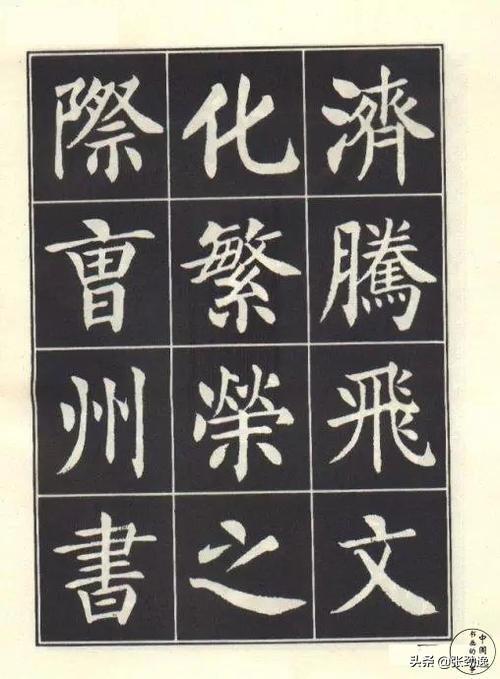 濟騰飛文
化繁榮之
際曺州書
头条 @张劲逸